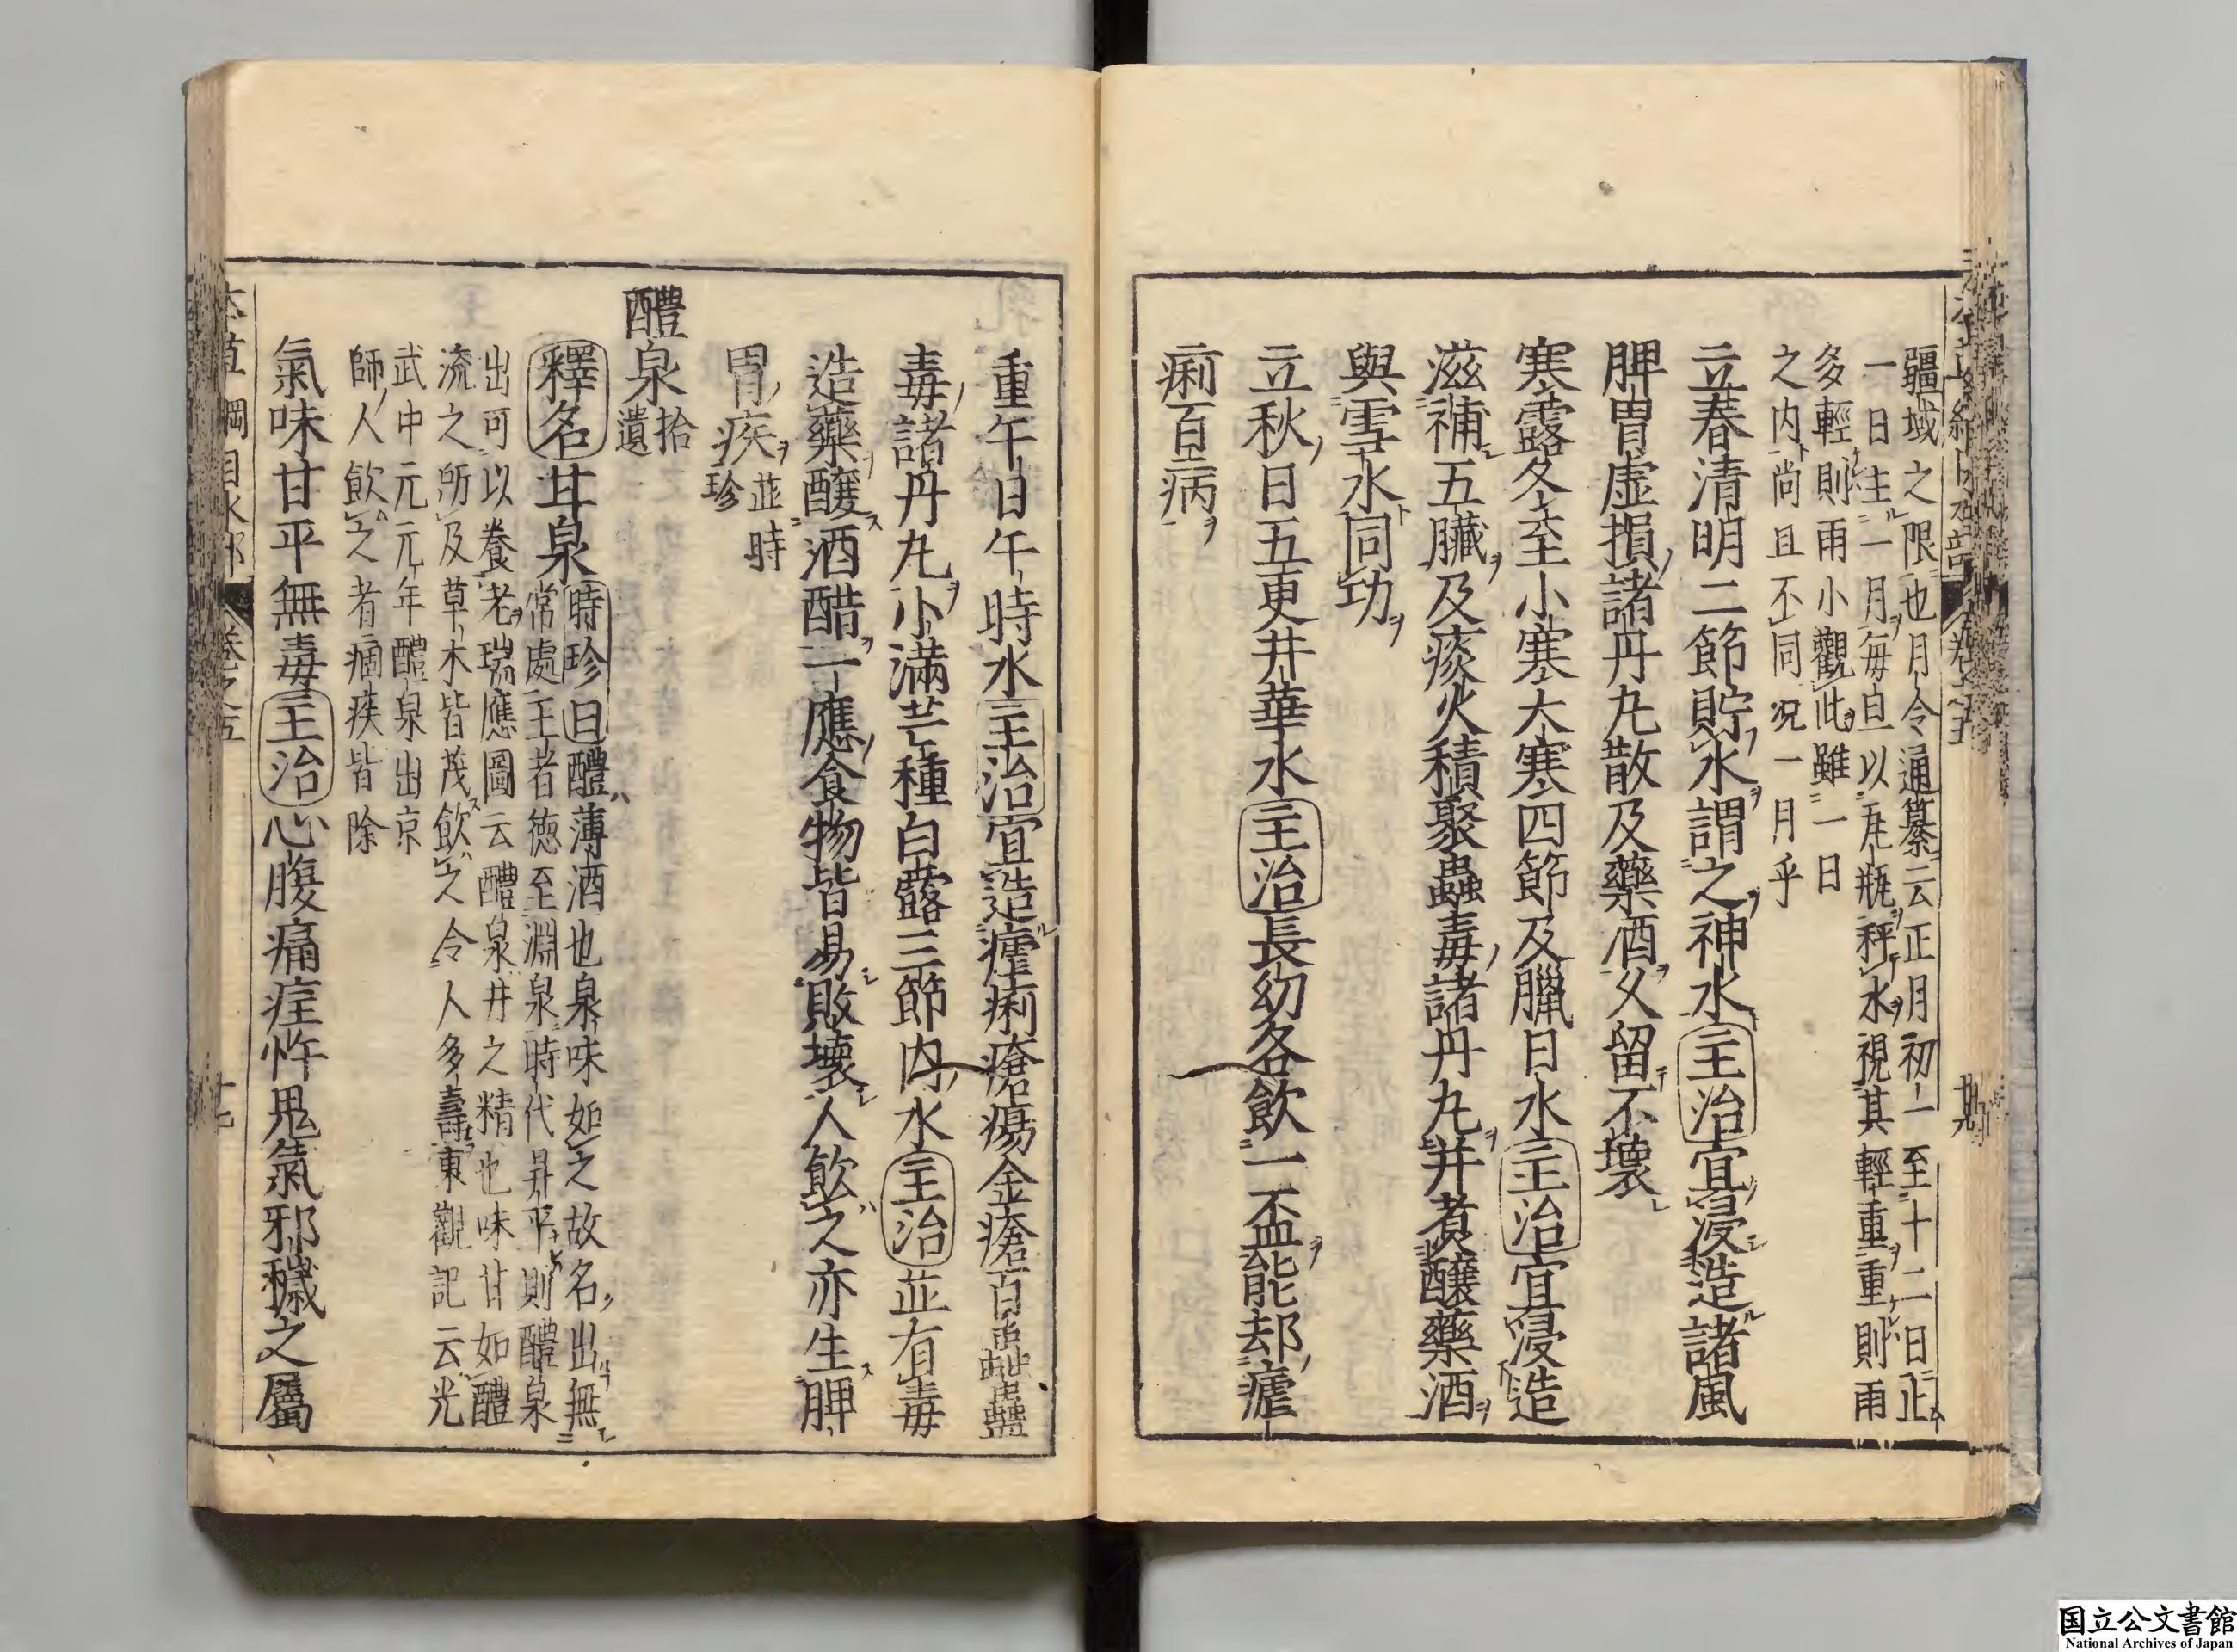 疆域之限也月令通纂云正月初一至十二日止
一日主一月每旦以瓦瓶秤水視其輕重重則雨
多輕則雨小觀此雖一日
之内尚且不同况一月乎
立春清明二節貯水謂之神水主治宜浸造諸風
脾胃虚損諸丹丸散及藥酒久留不壞
寒露冬至小寒大寒四節及臘日水主治宜浸造
滋補五臟及痰火積聚蟲毒諸丹丸并煑釀藥酒
與雪水同功
立秋日五更井華水主治長幼各飲一盃能却瘧
痢百病
重午日午時水主治宜造瘧痢瘡瘍金瘡百蟲蠱
毒諸丹丸小滿芒種白露三節内水主治並有毒
造藥釀酒醋一應食物皆易敗壞人飮之亦生脾
胃疾並時珍
醴泉拾遺
釋名甘泉時珍曰醴薄酒也泉味如之故名出無
常處王者德至淵泉時代昇平則醴泉
出可以養老瑞應圖云醴泉井之精也味甘如醴
流之所及草木皆茂飲之令人多壽東觀記云光
武中元元年醴泉出京
師人飲之者痼疾皆除
氣味甘平無毒主治心腹痛疰忤鬼氣邪穢之屬
本草綱目水部 卷之五
国立公文書館
National Archives of Japan